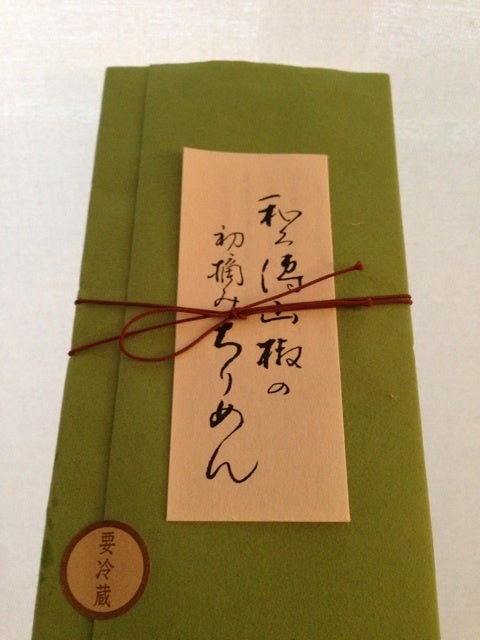 和久傳山椒の
初摘みちりめん
要冷蔵